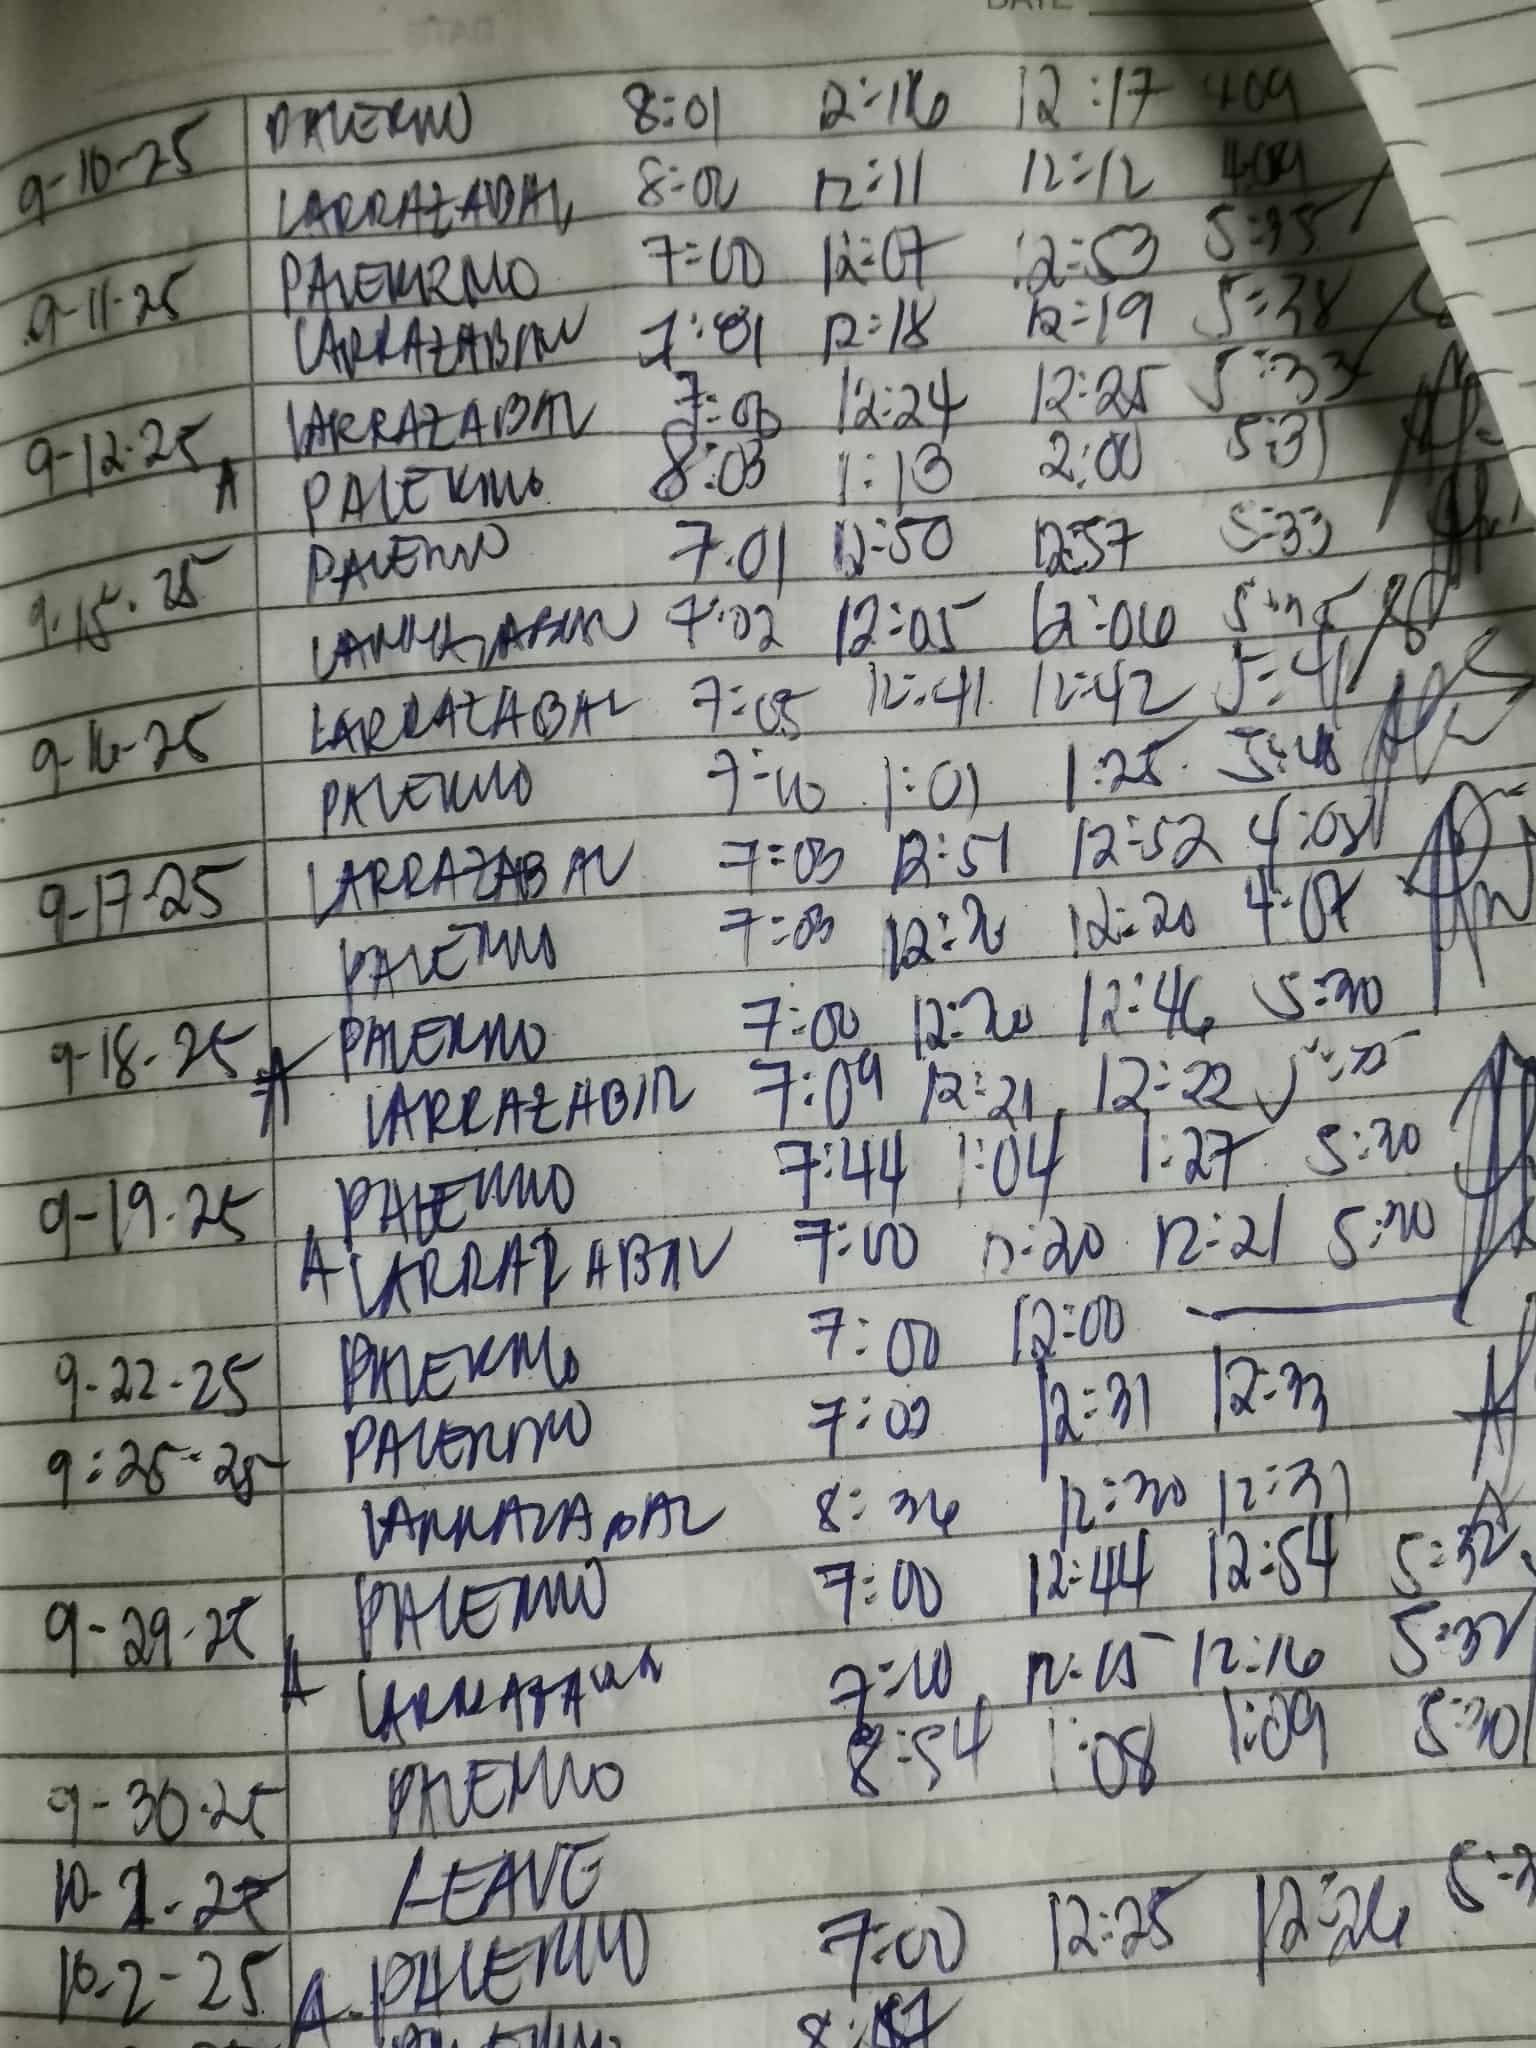 DATE
DATE
9-10-25 PALERMO 8:01 12:16 12:17 4:09
LARRAZABAL 8:00 12:11 12:12 4:09
9-11-25 PALERMO 7:00 12:07 12:53 5:35
LARRAZABAL 7:01 12:18 12:19 5:38
9-12-25 LARRAZABAL 12:24 12:25 5:33
A PALERMO 8:03 1:13 2:00 5:31
9-15-25 PALERMO 7:01 12:50 12:57 5:33
LARRAZABAL 7:02 12:05 12:06
9-16-25 LARRAZABAL 7:05 12:41 12:42 5:41
PALERMO 7:10 1:01 1:25
9-17-25 LARRAZABAL 7:03 12:51 12:52 4:08
PALERMO 7:03 12:20 12:20 4:07
9-18-25 PALERMO 7:00 12:20 12:46 5:30
A LARRAZABAL 7:09 12:21 12:22
9-19-25 PALERMO 7:44 1:04 1:27 5:30
A LARRAZABAL 7:00 12:20 12:21 5:30
9-22-25 PALERMO 7:00 12:00
9:25-25 PALERMO 12:31 12:33
LARRAZABAL 8:36 12:30 12:31
9-29-25 PALERMO 7:00 12:44 12:54 5:32
A LARRAZABAL 7:10 12:15 12:16 5:32
9-30-25 PALERMO 8:54 1:08 1:09 5:30
10-1-25 LEAVE
10-2-25 A PALERMO 7:00 12:25 12:26
PALERMO